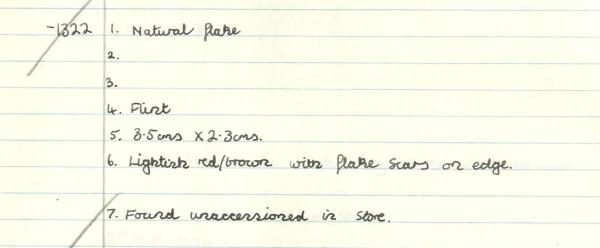 -1322 1. Natural flake
2.
3.
4. Flint
5. 3.5cms x 2.3cms.
6. Lightish red/brown with flake scars on edge.
7. Found unaccessioned in store.